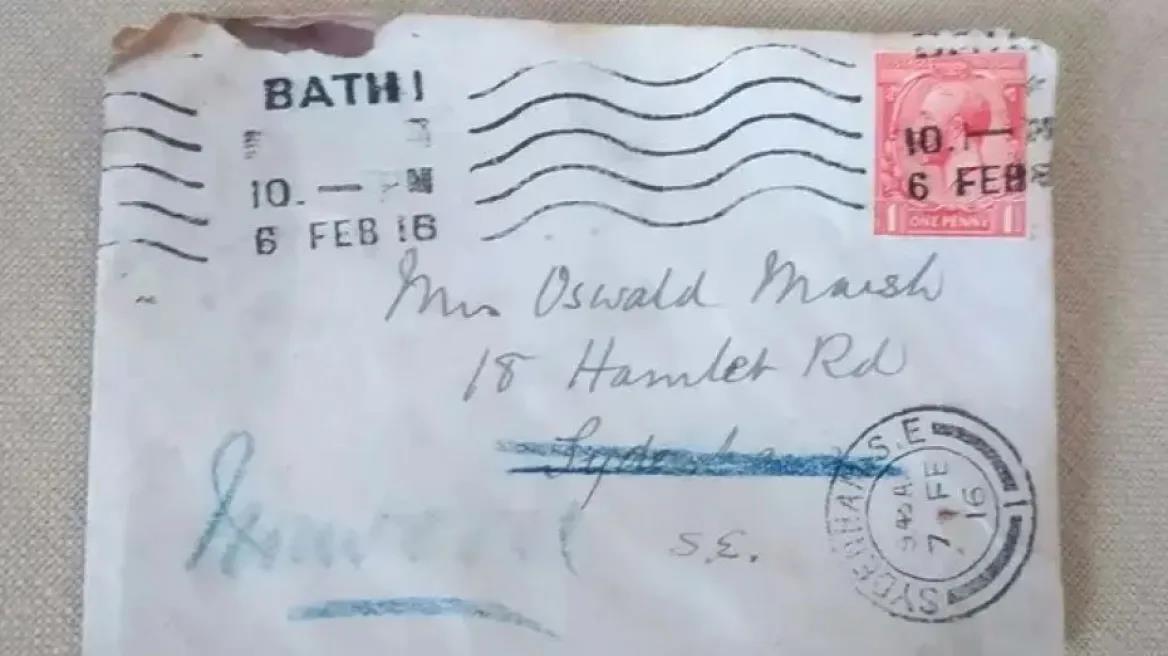 BATH 1
10. —
6 FEB 16
10. —
6 FEB
1 ONE PENNY 1
Mrs Oswald Marsh
18 Hamlet Rd
Sydenham
S.E.
SYDENHAM S.E
9 45 A
7 FE
16